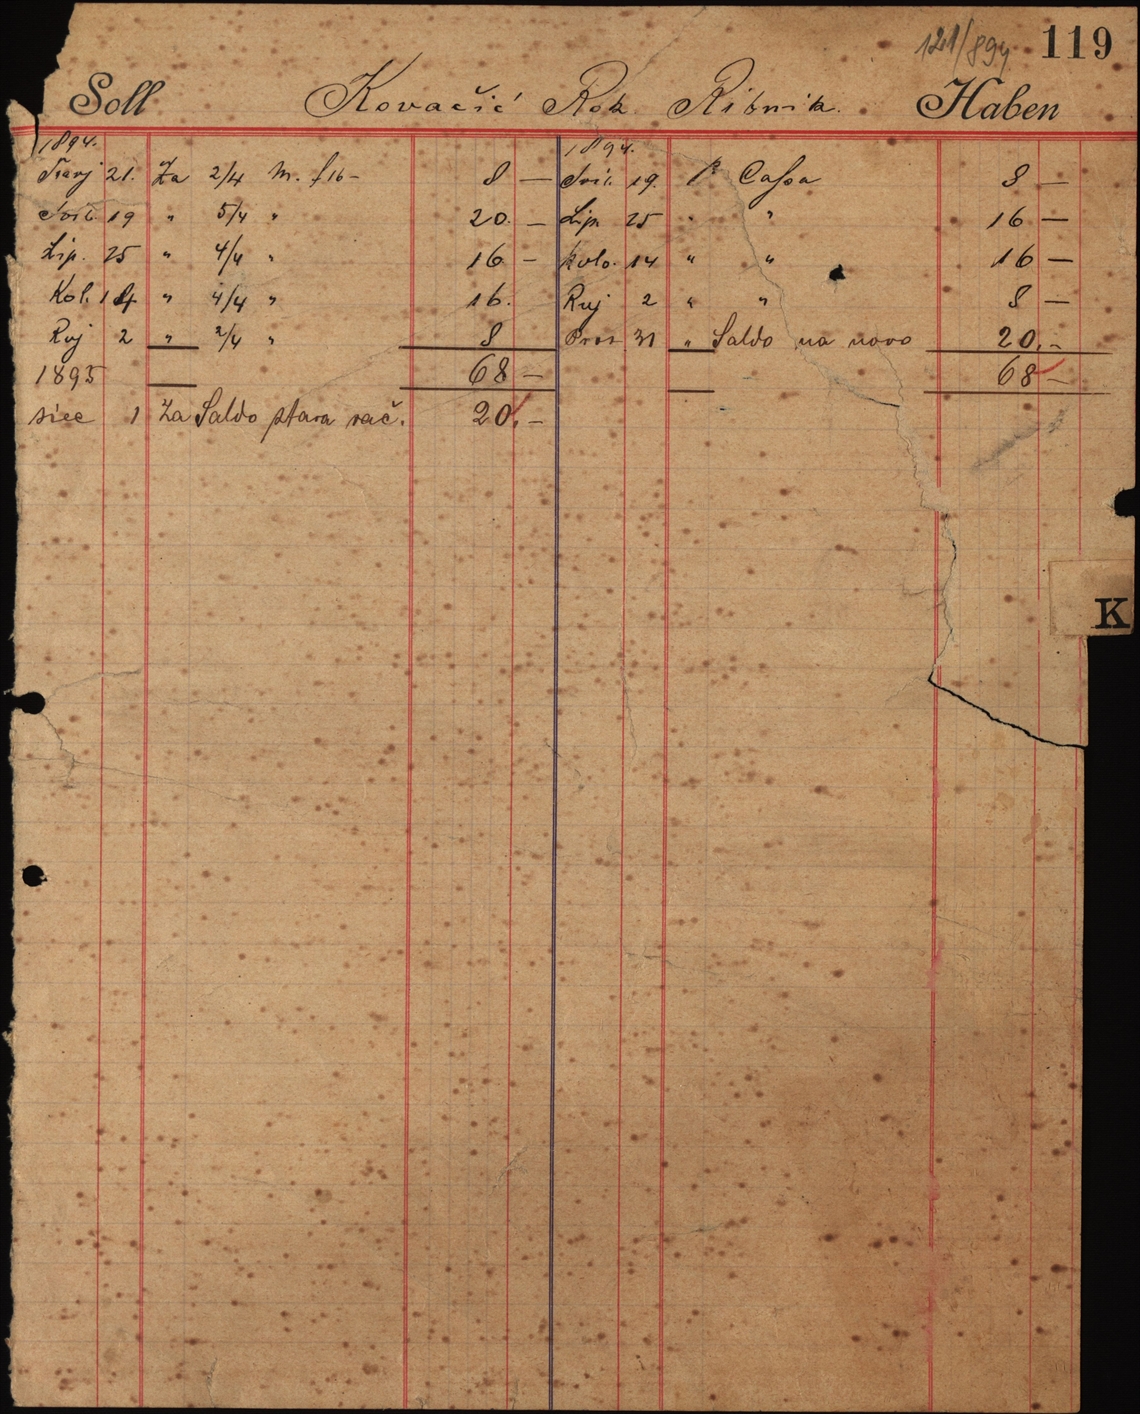 121/894 119
Soll Kovačić Rok. Ribnik. Haben
1894. 1894.
Travj 21. Za 2/4 M. f 16 - 8 — Svib. 19. p Cassa 8 —
Svib. 19 " 5/4 " 20. — Lip. 25 " " 16 —
Lip. 25 " 4/4 " 16 - Kolo. 14 " " 16 —
Kol. 14 " 4/4 " 16. Ruj 2 " " 8 —
Ruj 2 " 2/4 " 8 Pros 31 " Saldo na novo 20.-
1895 68 - 68 -
siec 1 Za Saldo stara rač. 20.-
K